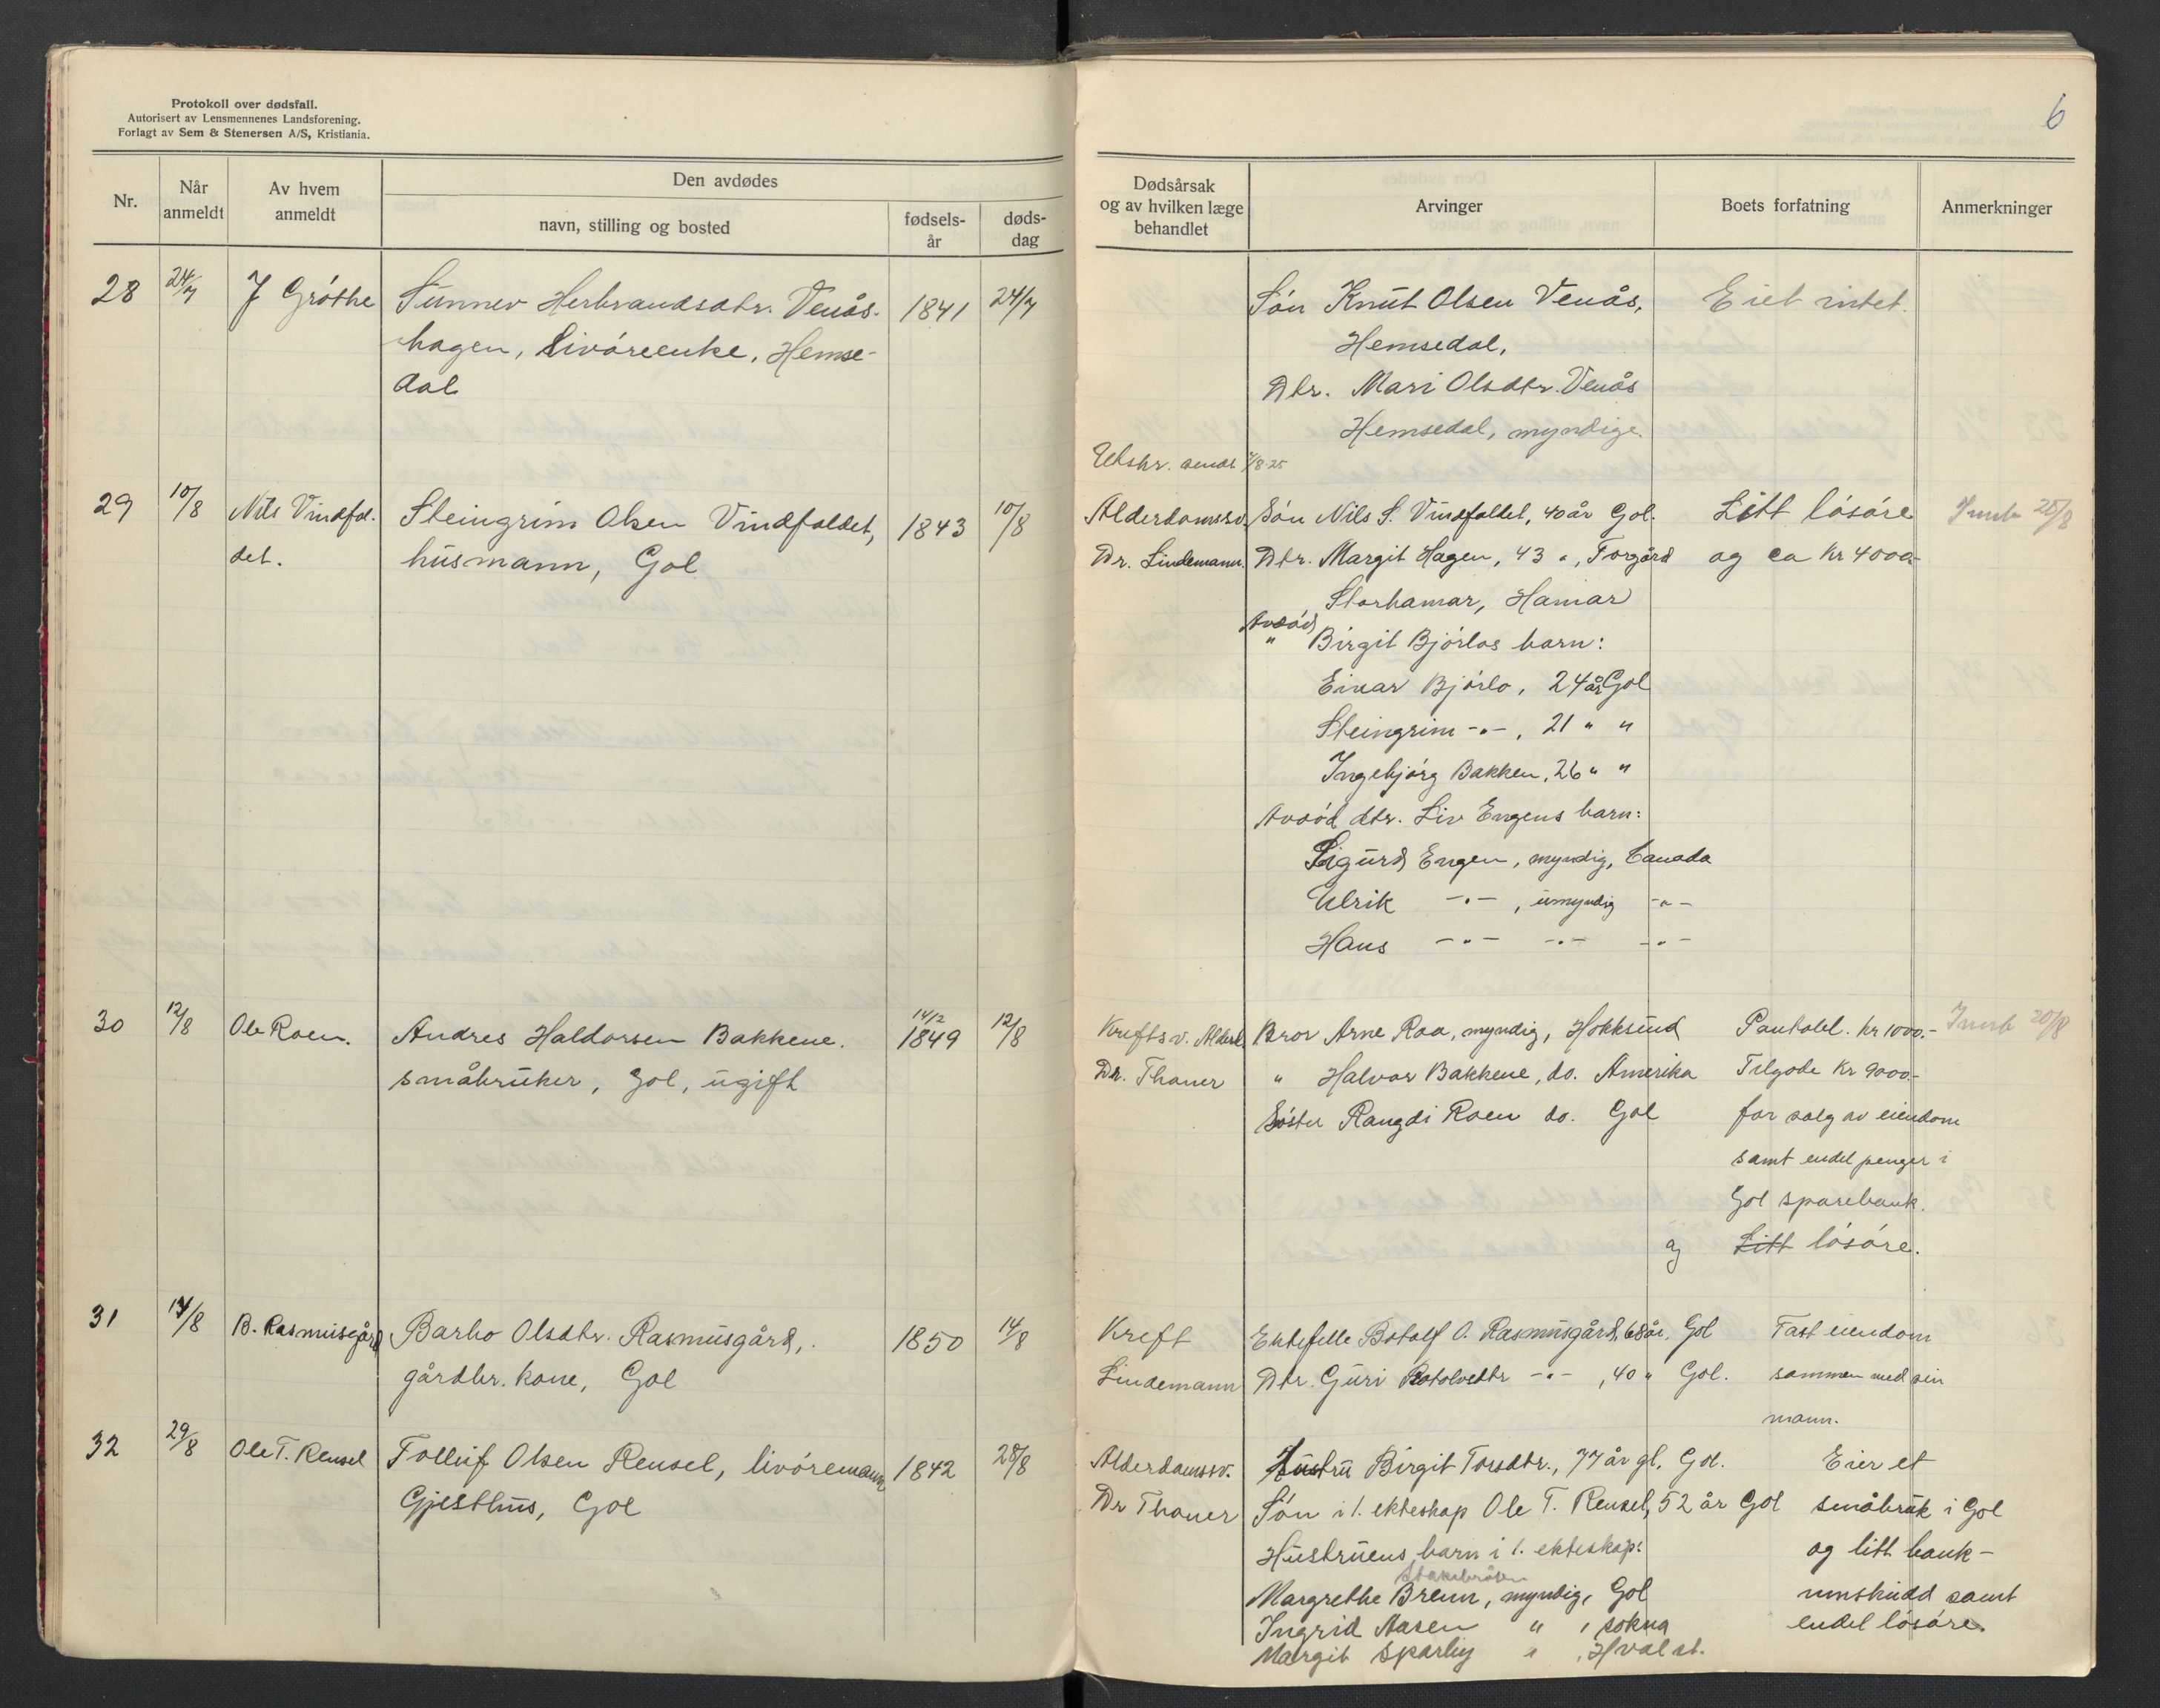 Protokoll over dødsfall.
Autorisert av Lensmennenes Landsforening.
Forlagt av Sem & Stenersen A/S, Kristiania.
6
Nr.
Når anmeldt
Av hvem anmeldt
Den avdødes
navn, stilling og bosted
fødsels-år
døds-dag
Dødsårsak og av hvilken læge behandlet
Arvinger
Boets forfatning
Anmerkninger
28 24/7 J Gróthe Sunnev Herbrandsdtr. Venås- 1841 24/7
hagen, Livóreenke, Hemse-
dal
Són Knut Olsen Venås, Eiet intet.
Hemsedal,
Dtr. Mari Olsdtr. Venås
Hemsedal, myndige.
Utskr. sendt 7/8 25
29 10/8 Nils Vindfol- Steingrim Olsen Vindfaldet, 1843 10/8
det. husmann, Gol
Alderdomssv. Són Nils S. Vindfaldet, 40 år Gol. Litt lósóre
Dr. Lindemann. Dtr. Margit Hagen, 43 ", Torgård og ca kr 4000.-
Storhamar, Hamar
Avdód
" Birgit Bjórlos barn:
Einar Bjórlo, 24 år Gol
Steingrim -"-, 21 " "
Ingebjórg Bakken, 26 " "
Avdód dtr. Liv Engens barn:
Sigurd Engen, myndig, Canada
Ulrik -"-, umyndig -"-
Hans -"- -"- -"-
30 12/8 Ole Roen. Andres Haldorsen Bakkene. 14/2 1849 12/8
småbruker, Gol, ugift
Kreft Bror Arne Roa, myndig, Hokksund Pantobl. kr 1000.-
Dr. Thaner " Halvor Bakkene, do. Amerika Tilgode kr 9000.-
Sóster Rangdi Roen do. Gol for salg av eiendom
samt endel penger i
Gol sparebank.
og Litt lósóre.
31 14/8 B. Rasmusgård Barbo Olsdtr. Rasmusgård, 1850 14/8
gårdbr. kone, Gol
Kreft Ektefelle Botolf O. Rasmusgård, 68 år, Gol Fast eiendom
Lindemann Dtr. Guri Botolvsdtr -"-, 40 " Gol. sammen med sin
mann.
32 29/8 Ole T. Rensel Tolleif Olsen Rensel, livóremann 1842 28/8
Gjesthus, Gol
Alderdomssv. Hustru Birgit Torsdtr., 77 år gl. Gol. Eier et
Dr Thaner Són i 1. ekteskap Ole T. Rensel, 52 år Gol småbruk i Gol
Hustruens barn i 1. ekteskap: og litt bank-
Margrethe Brenn, myndig, Gol innskudd samt
Ingrid Aasen " , Sokna endel lósóre.
Margit Sparby " , Hval st.